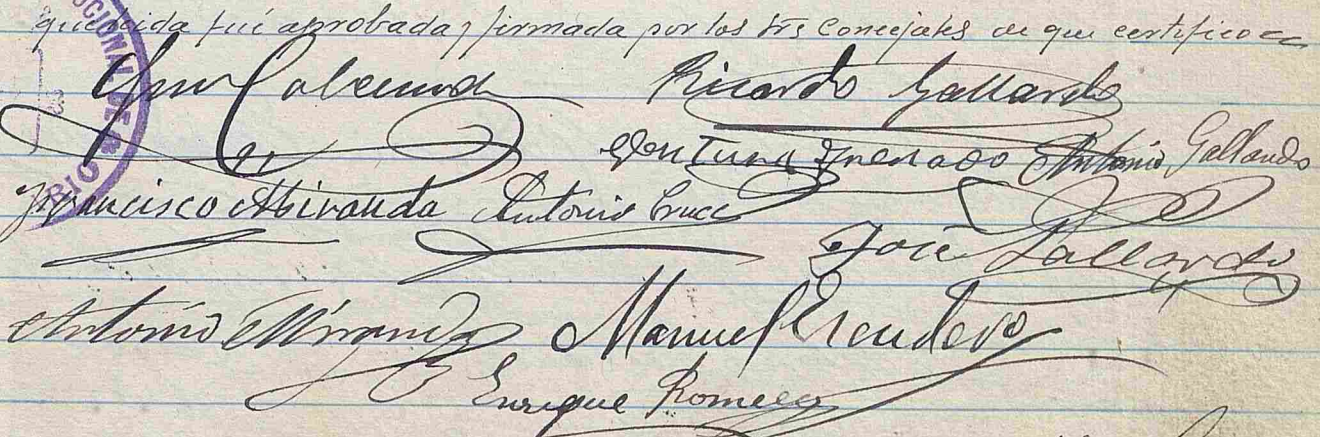 fué aprobada y firmada por los Srs Concejales de que certifico
Ricardo Gallardo
Antonio Gallardo
Francisco Miranda Antonio Cruz
José Gallardo
Antonio Miranda Manuel Escudero
Enrique Romero